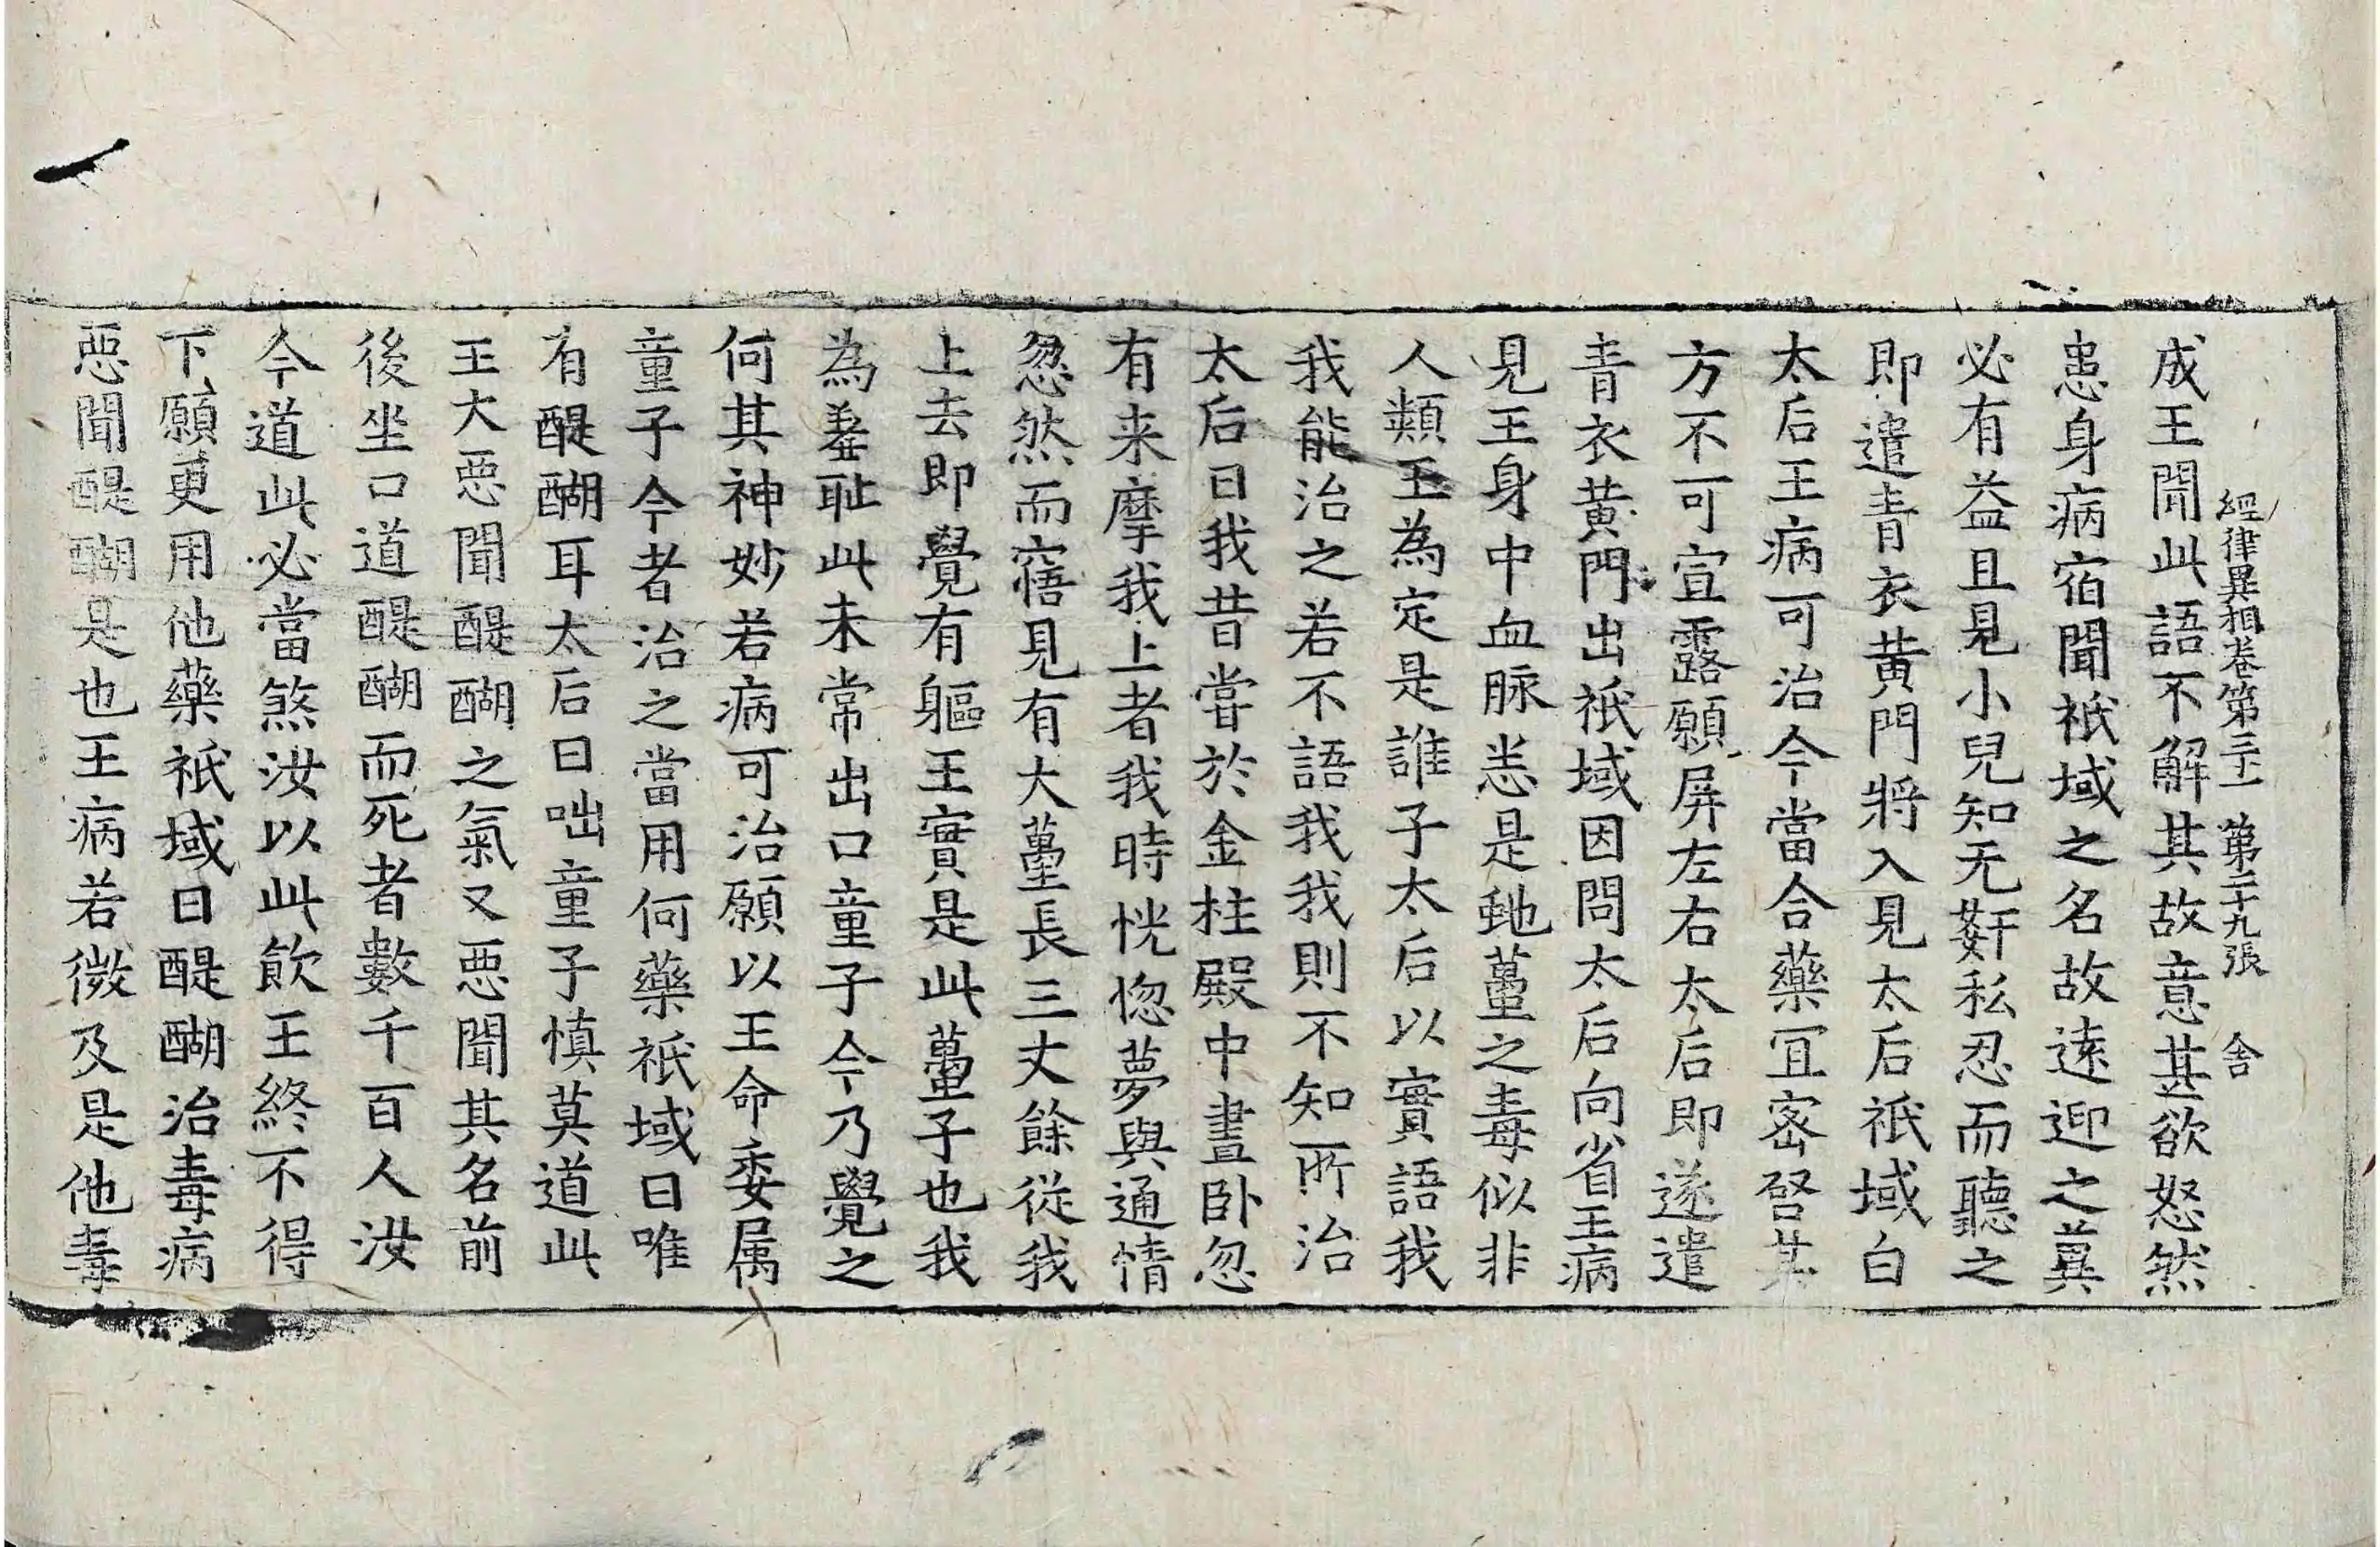 經律異相卷第三十一 第二十九張 舍
成王聞此語不解其故意甚欲怒然
患身病宿聞祇域之名故遠迎之兾
必有益且見小兒知无姧私忍而聽之
即遣青衣黄門將入見太后祇域白
太后王病可治今當合藥冝宻啓其
方不可宣露願屏左右太后即遂遣
青衣黄門出祇域因問太后向省王病
見王身中血脉恙是虵蠆之毒似非
人類王為定是誰子太后以實語我
我能治之若不語我我則不知所治
太后曰我昔甞於金柱殿中晝卧忽
有来摩我上者我時恍惚夢與通情
忽然而寤見有大蠆長三丈餘從我
上去即覺有軀王實是此蠆子也我
為羞耻此未常出口童子今乃覺之
何其神妙若病可治願以王命委属
童子今者治之當用何藥祇域曰唯
有醍醐耳太后曰咄童子慎莫道此
王大惡聞醍醐之氣又惡聞其名前
後坐口道醍醐而死者數千百人汝
今道此必當煞汝以此飲王終不得
下願更用他藥祇域曰醍醐治毒病
惡聞醍醐是也王病若微及是他毒